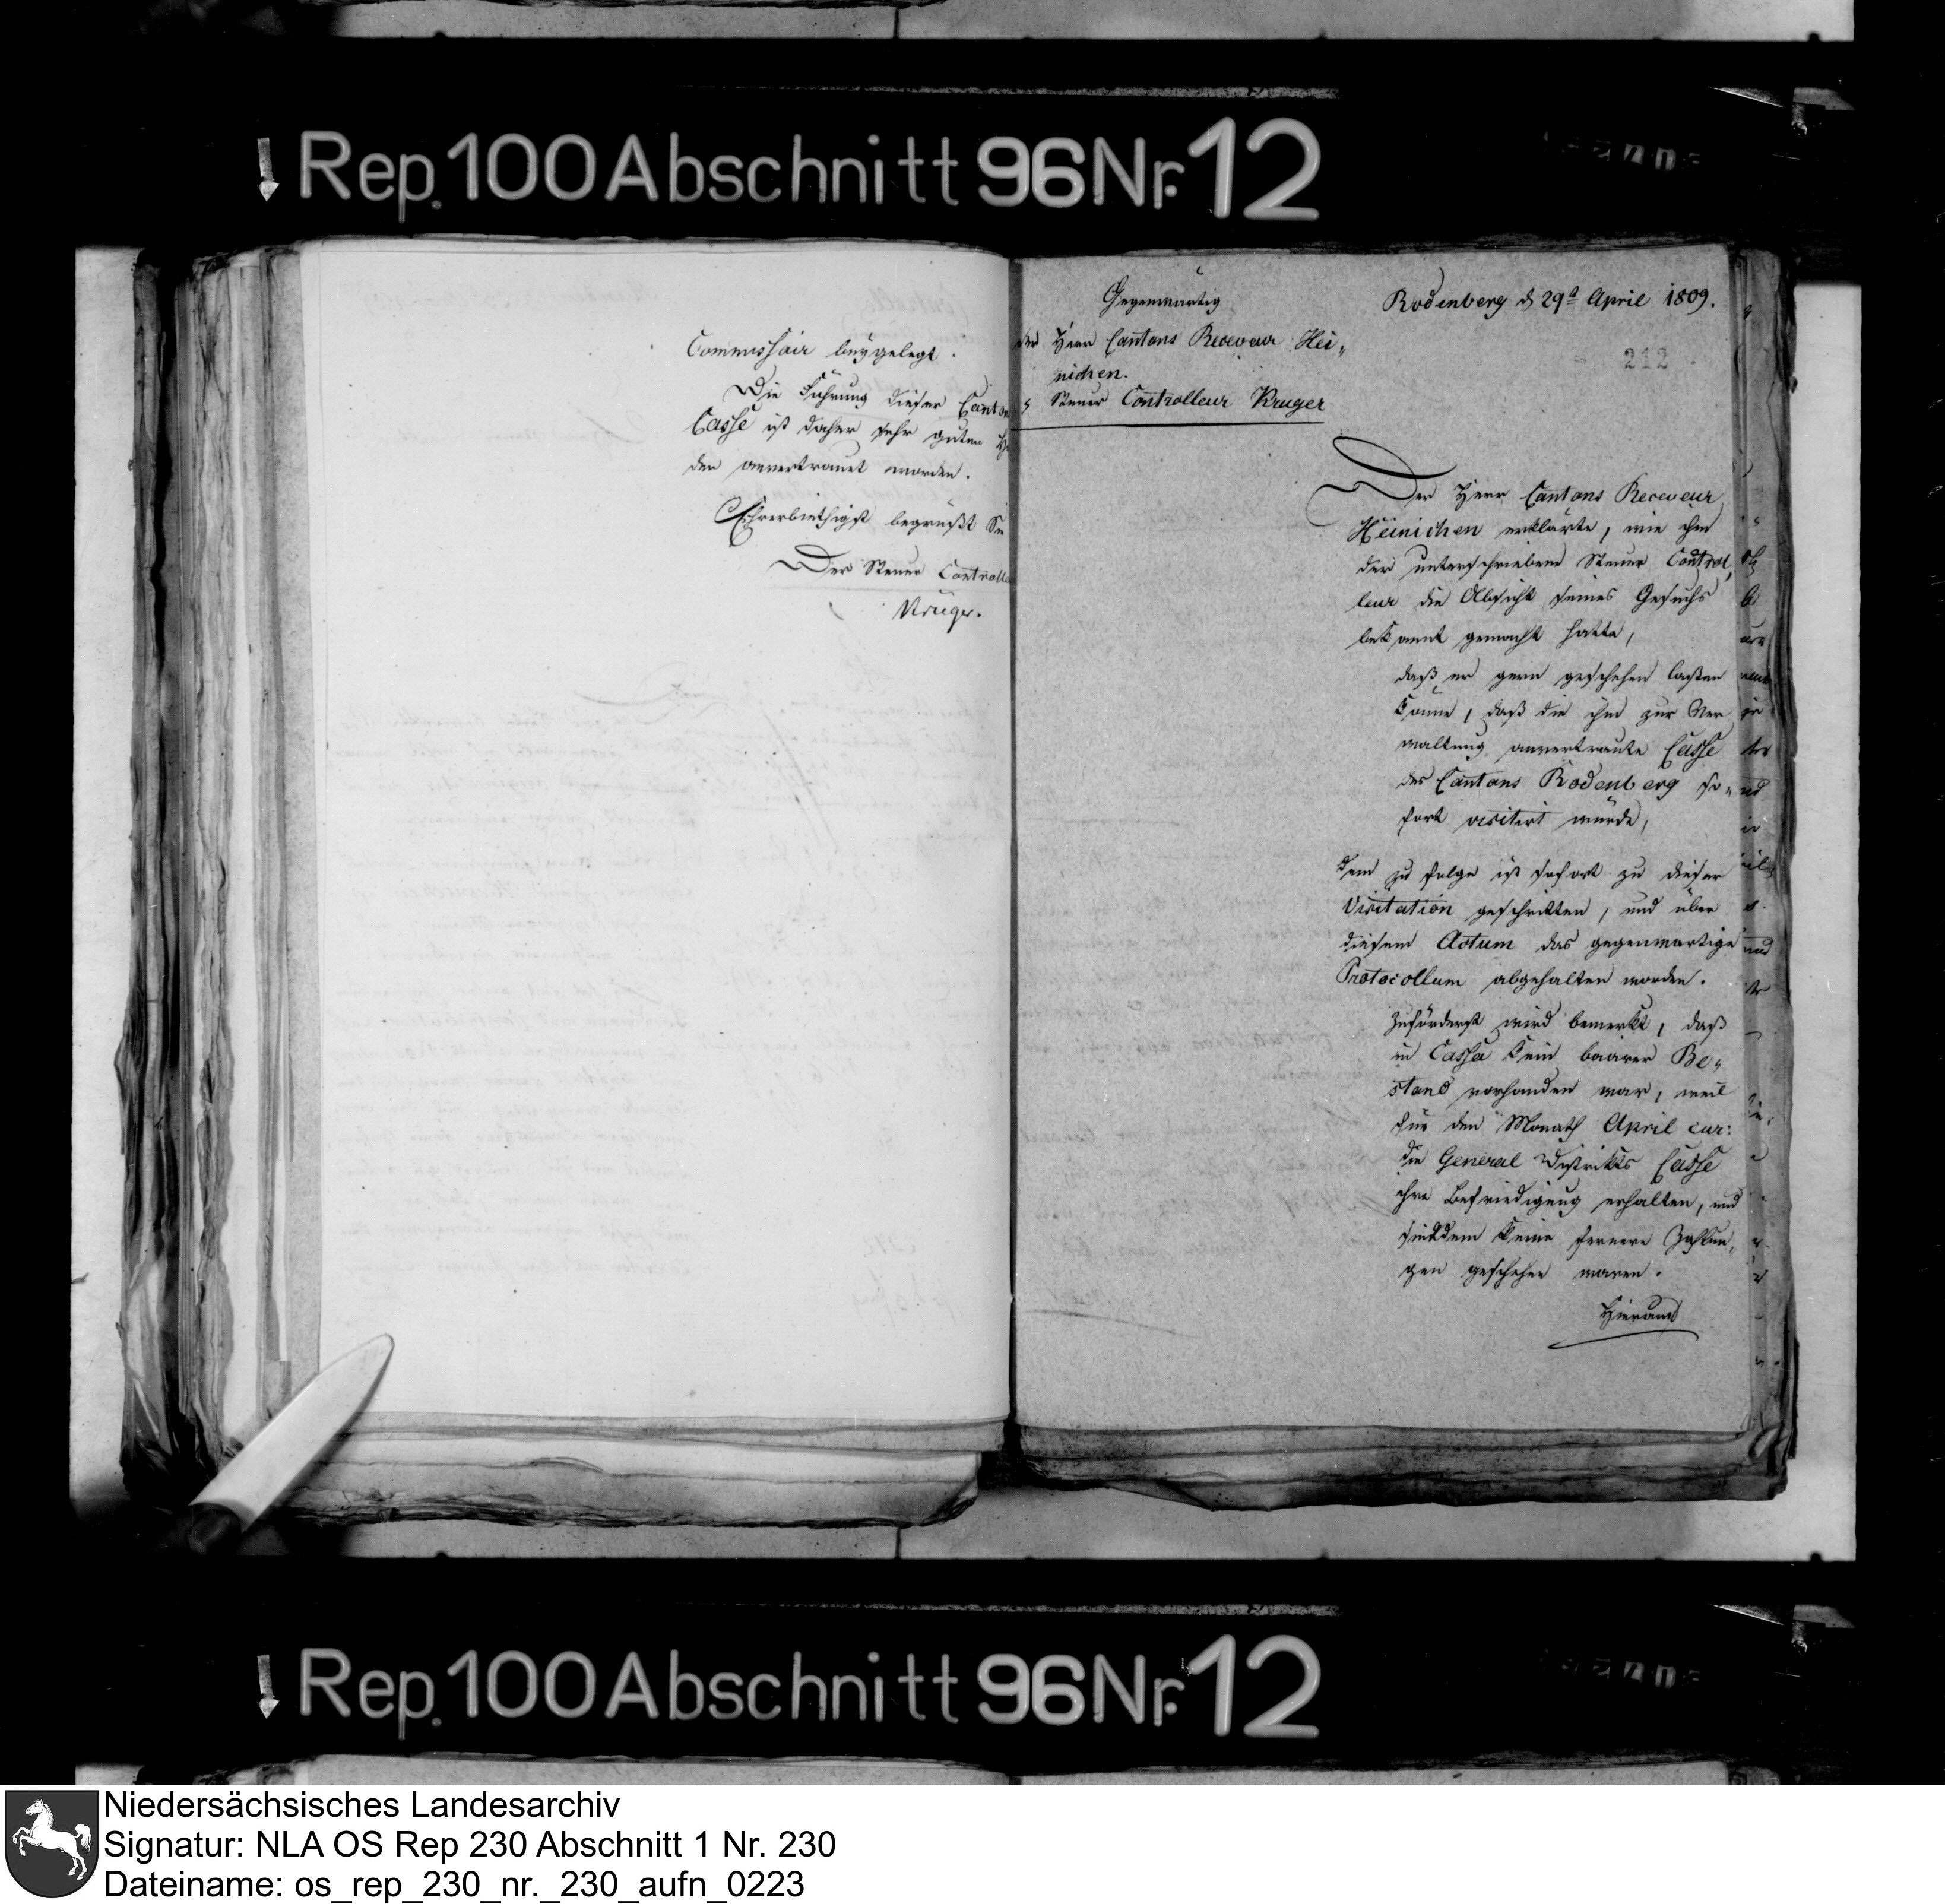 Rep. 100 Abschnitt 96 Nr. 12
Commissair beygelegt.
Die Führung dieser Canton
Casse ist daher sehr guten
den anvertrauet worden.
Ehrerbiethigst begrüßt Sie
Der Steuer Controlle
Krüger.
Gegenwärtig
der Herr Cantons Receveur Hei„
nichen.
Steuer Controlleur Kruger
Rodenberg d 29n April 1809.
212
Der Herr Cantons Receveur
Heinichen erklärte, wie ihm
der unterschriebene Steuer Control„
leur die Absicht seines Gesuchs
bekannt gemacht hatte,
daß er gern geschehen laßen
könne, daß die ihm zur Ver
waltung anvertraute Casse
des Cantons Rodenberg so„
fort visitirt würde,
dem zu folge ist sofort zu dieser
Visitation geschritten, und über
diesem Actum das gegenwärtige
Protocollum abgehalten worden.
Zuförderst wird bemerkt, daß
in Cassa kein baarer Be„
stand vorhanden war, weil
für den Monath April cur:
die General Districts Casse
ihre Befriedigung erhalten, und
seitdem keine fernere Zahlun„
gen geschehen waren.
Hierauf
Rep. 100 Abschnitt 96 Nr. 12
Niedersächsisches Landesarchiv
Signatur: NLA OS Rep 230 Abschnitt 1 Nr. 230
Dateiname: os_rep_230_nr._230_aufn_0223